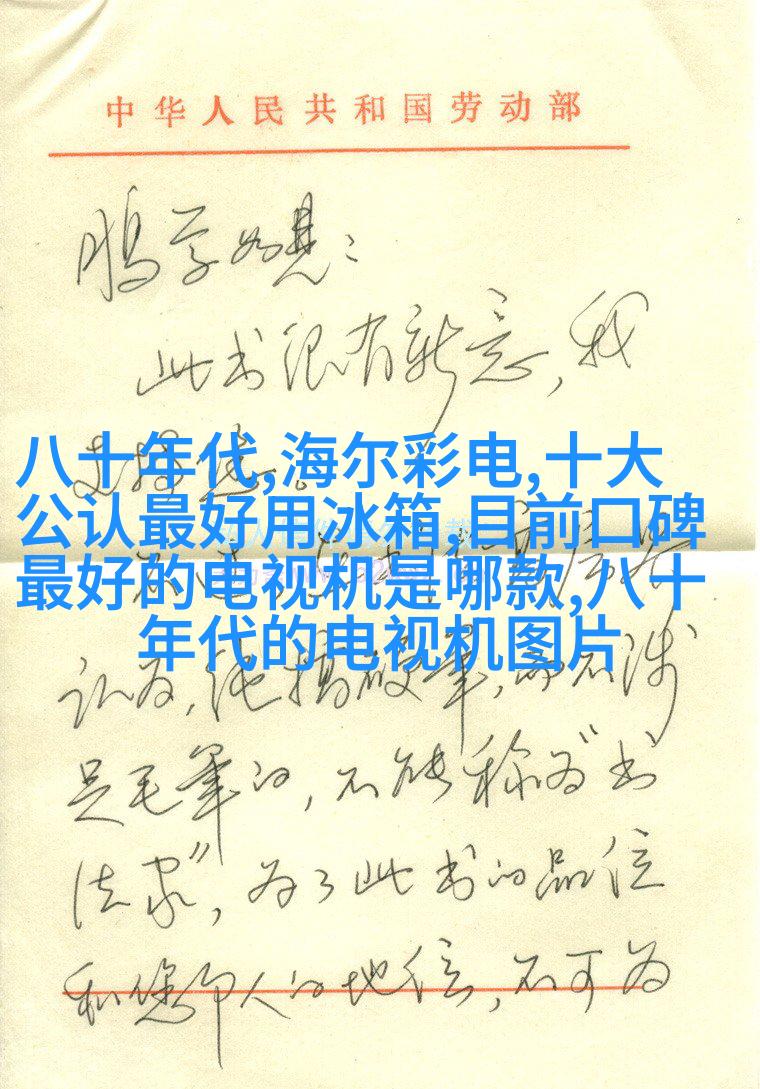 中华人民共和国劳动部
鹏学如晤：
此书很有新意，我
支持您。
八十年代,海尔彩电,十大
公认最好用冰箱,目前口碑
最好的电视机是哪款,八十
年代的电视机图片
认为，纯搞硬筆，而不涉
足毛筆的，不能称为“书
法家”，为了此书的品位
和您个人的地位，不可为